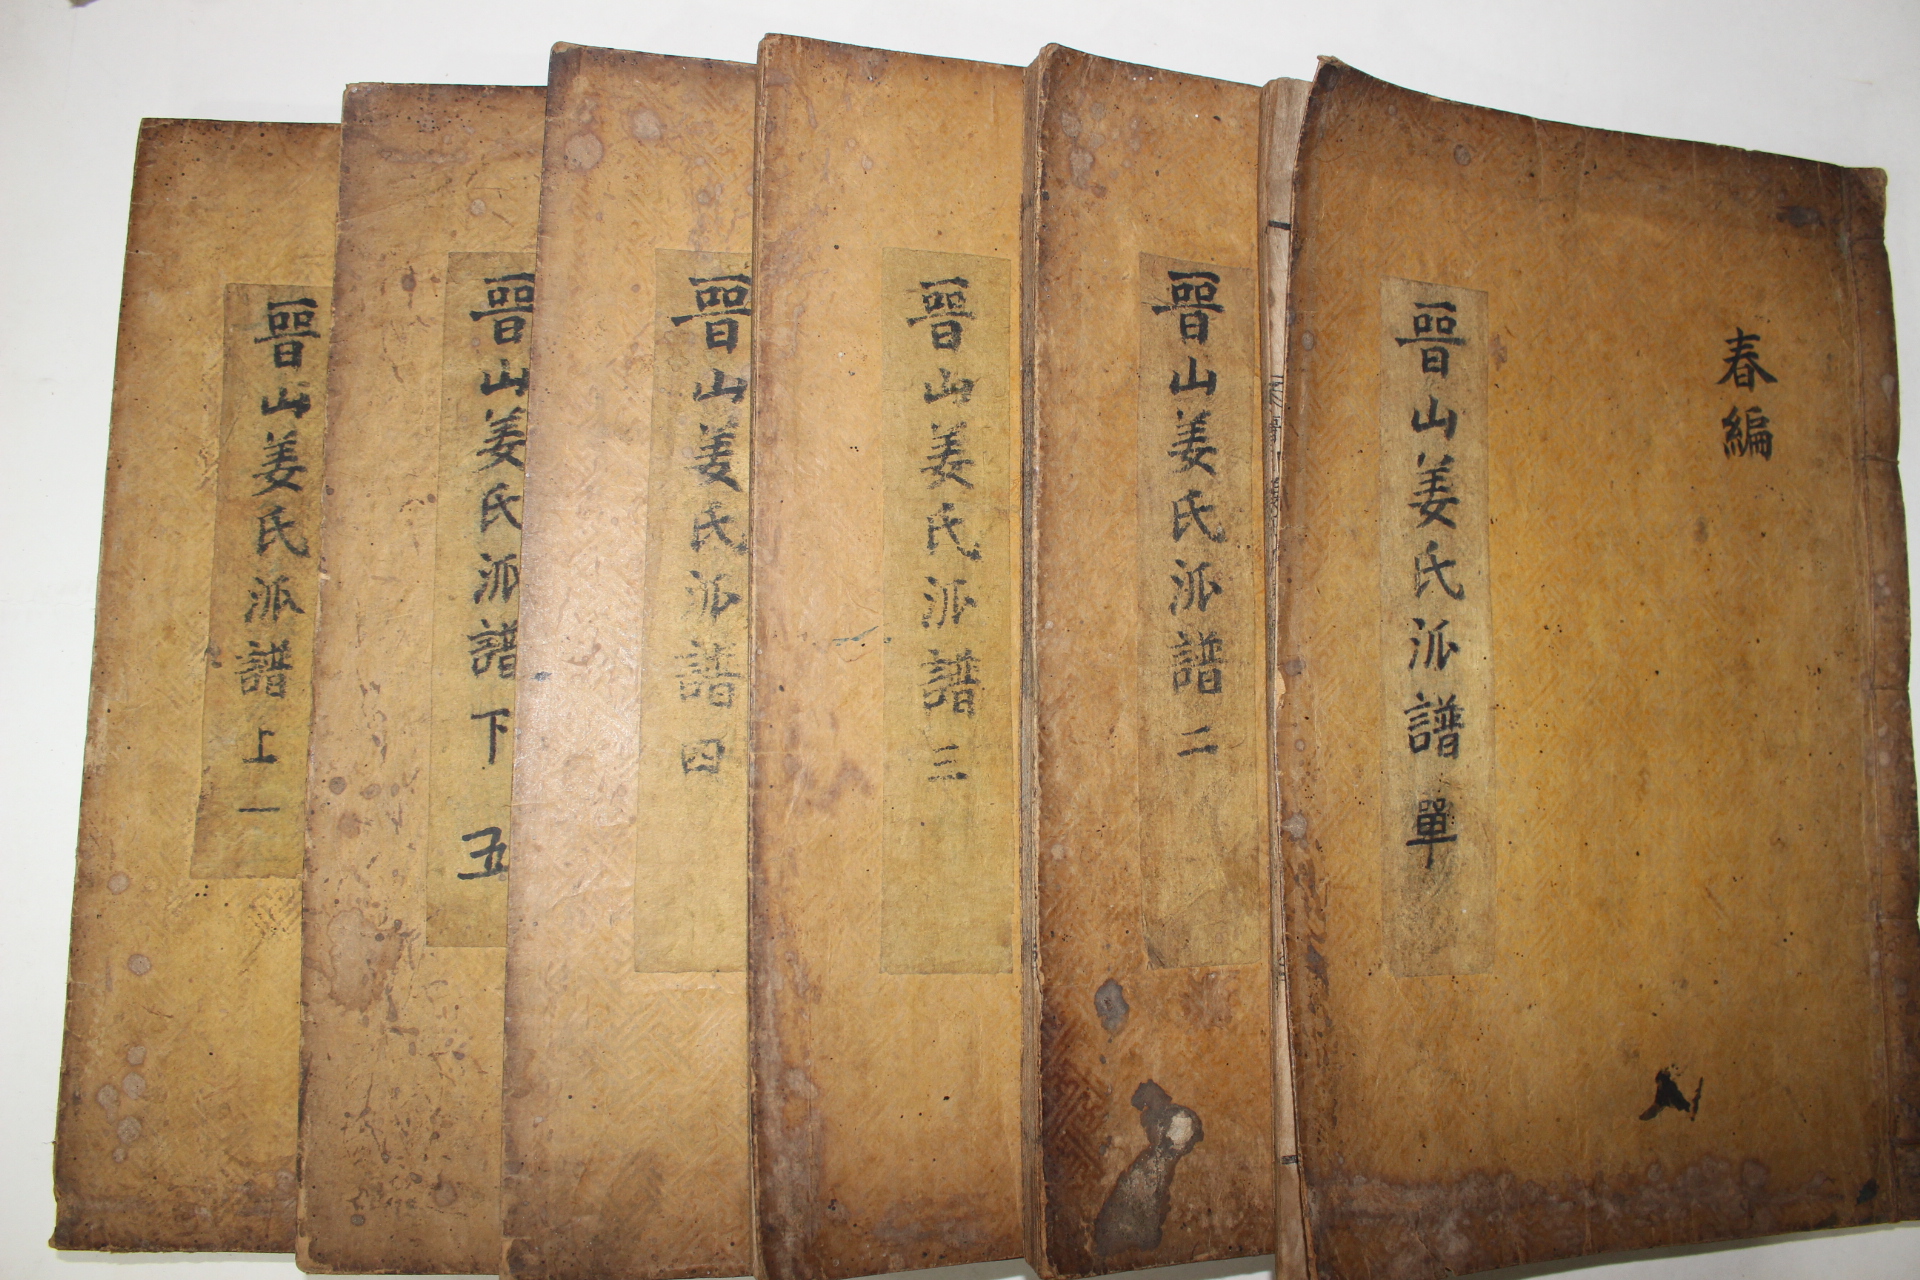 春編
晉山姜氏派譜 單
晉山姜氏派譜 二
晉山姜氏派譜 三
晉山姜氏派譜 四
晉山姜氏派譜 下 五
晉山姜氏派譜 上 一